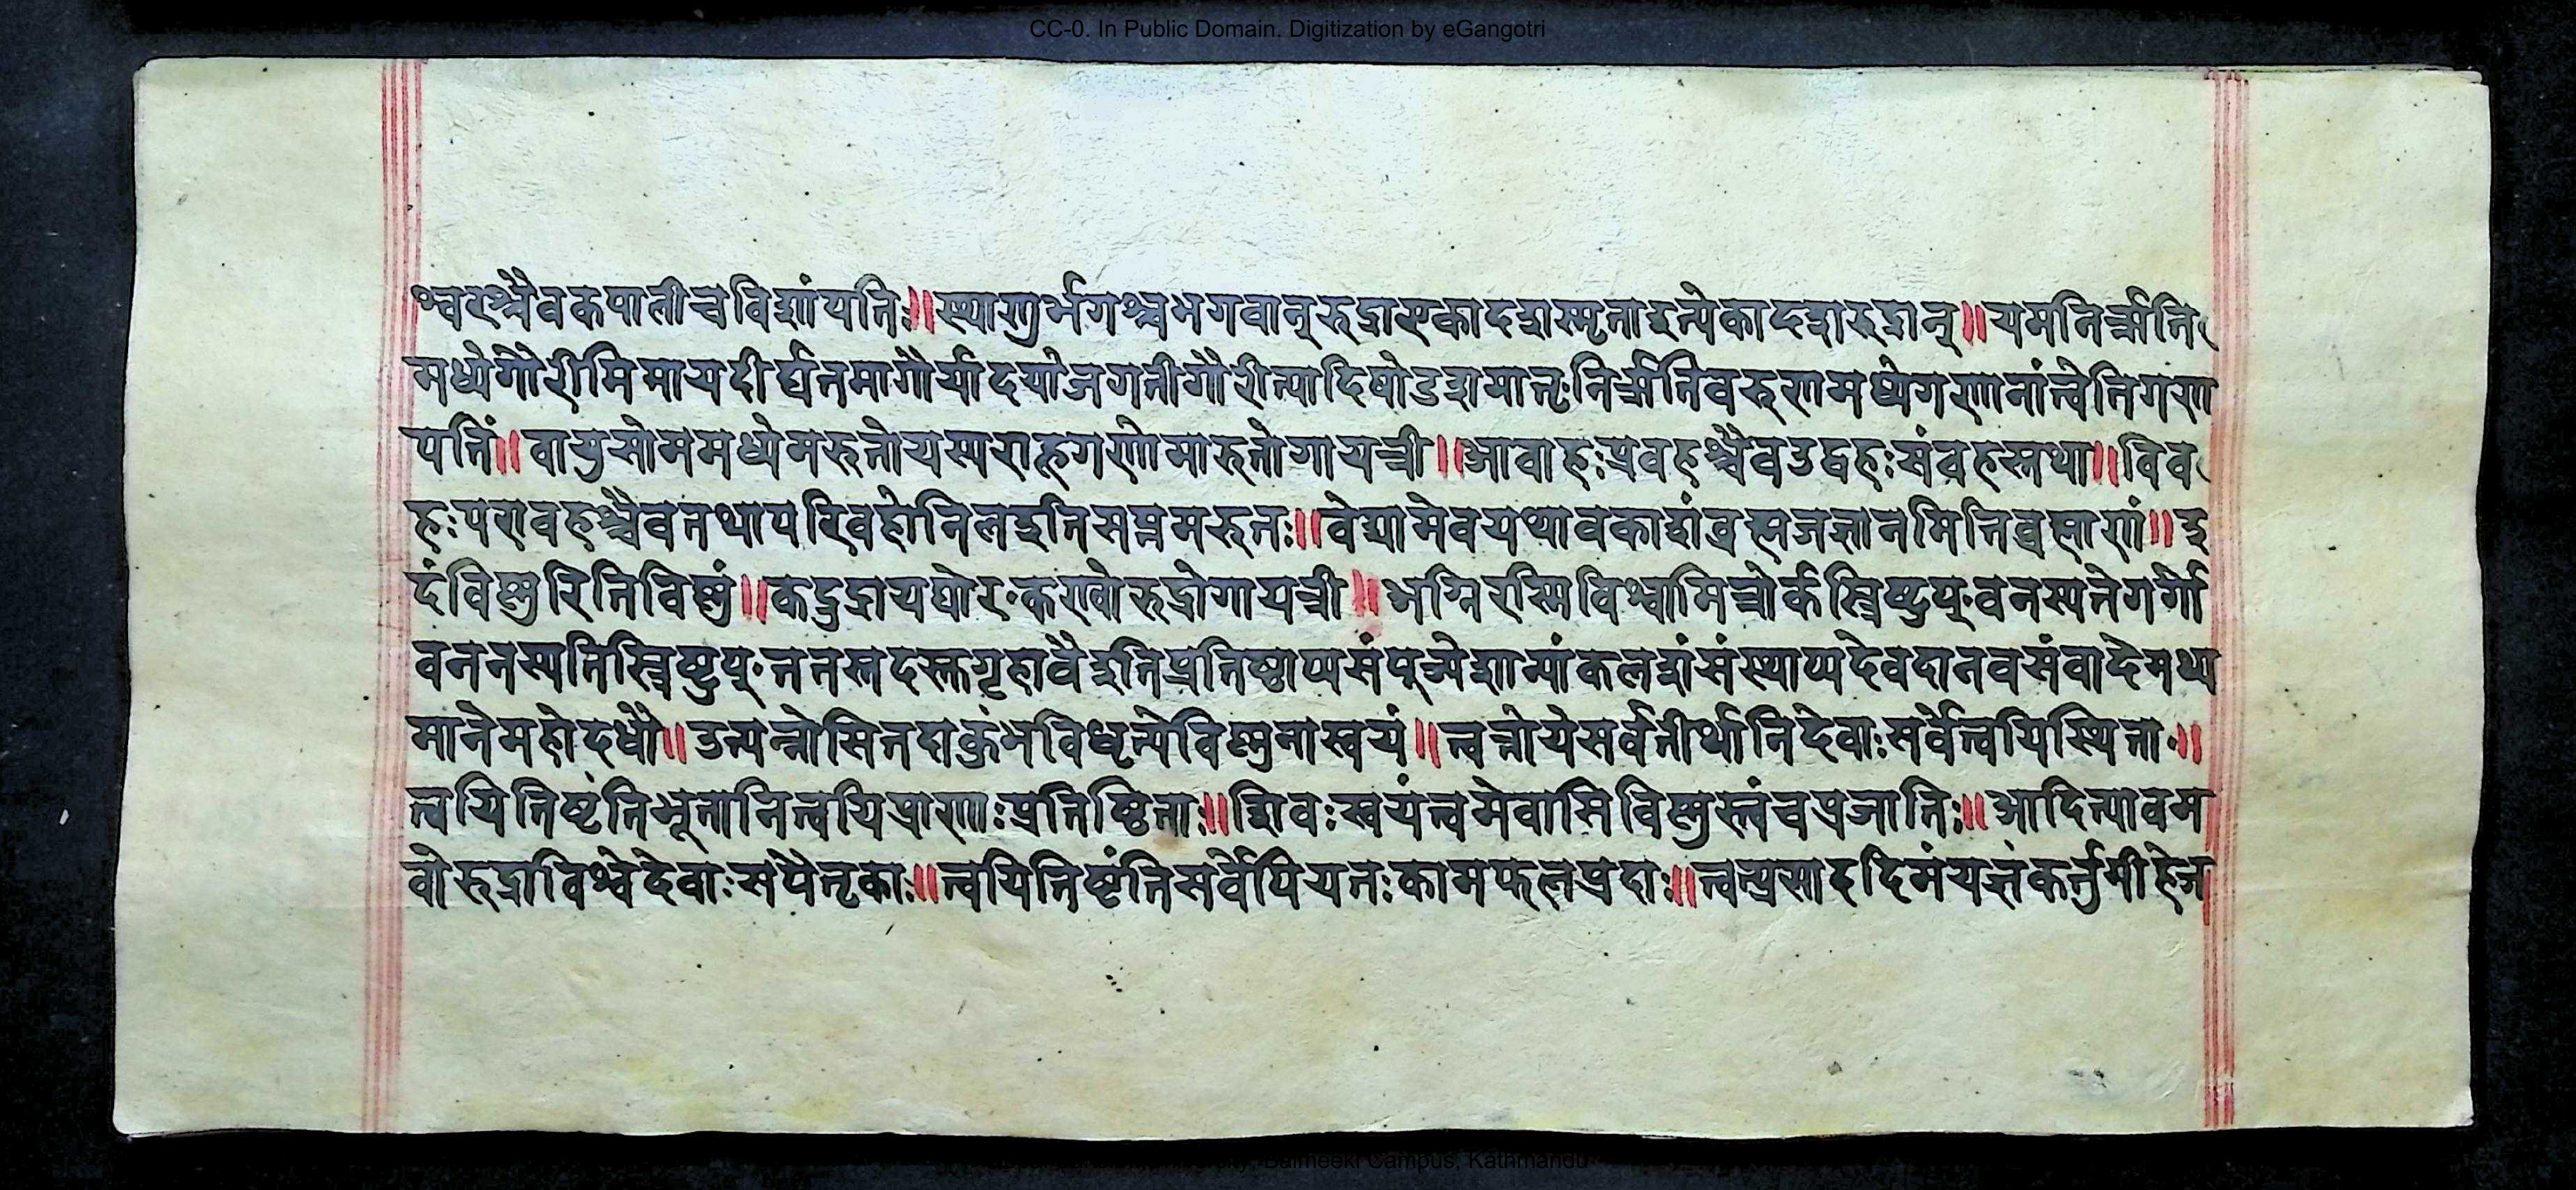 CC-0. In Public Domain. Digitization by eGangotri
श्वरश्चैवकपालीचविशांपतिः॥स्थाणुर्भगश्चभगवान्रुद्राएकादशस्मृताइत्येकादशरुद्रान्॥यमनिरृति
मध्येगौरीमिमायदीर्घतमागौर्यादयोजगतीगौरीत्यादिषोडशमातृःनिरृतिवरुणमध्येगणानांत्वेतिगण
पतिं॥वायुसोममध्येमरुतोयस्यराहूगणोमारुतोगायत्री॥आवाहःप्रवहश्चैवउद्वहःसंवहस्तथा॥विव
हःपरावहश्चैवतथापरिवहोनिलइतिसप्तमरुतः॥वेद्यामेवयथावकाशंब्रह्मजज्ञानमितिब्रह्माणं॥इ
दंविष्णुरितिविष्णुं॥कद्रुद्रायघोरःकण्वोरुद्रोगायत्री॥अग्निरस्मिविश्वामित्रोर्कस्त्रिष्टुप्वनस्पतेगर्गो
वननस्पतिस्त्रिष्टुप्ततस्तदस्तगृहावैइतिप्रतिष्ठाप्यसंपूज्येशान्यांकलशंसंस्थाप्यदेवदानवसंवादेमथ्य
मानेमहोदधौ॥उत्पन्नोसितदाकुंभविधृत्येविष्णुनास्वयं॥त्वत्तोयेसर्वतीर्थानिदेवाःसर्वेत्वयिस्थिताः॥
त्वयितिष्टंतिभूतानित्वयिप्राणाःप्रतिष्ठिताः॥शिवःस्वयंत्वमेवासिविष्णुस्त्वंचप्रजातिः॥आदित्यावम
वोरुद्राविश्वेदेवाःसपैतृकाः॥त्वयितिष्टंतिसर्वेपियतःकामफलप्रदाः॥त्वत्प्रसाददिमंयज्ञंकर्त्तुमीहेज
Balmeeki Campus, Kathmandu